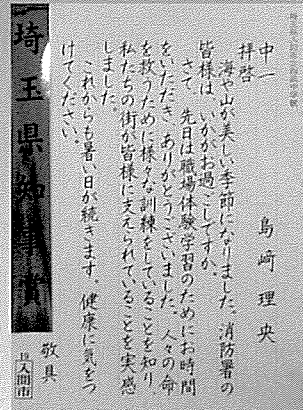 中一
島﨑理央
拝啓
海や山が美しい季節になりました。消防署の
皆様は、いかがお過ごしですか。
さて、先日は職場体験学習のためにお時間
をいただき、ありがとうございました。人々の命
を救うために様々な訓練をしていることを知り、
私たちの街が皆様に支えられていることを実感
しました。
これからも暑い日が続きます。健康に気をつ
けてください。
敬具
埼玉県知事賞
19
入間市